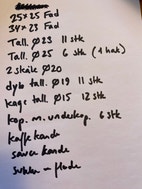 25x25 Fad
34x23 Fad
Tall. Ø23 11 stk
Tall. Ø25 6 stk (1 hak)
2 skåle Ø20
dyb tall. Ø19 11 stk
kage tall Ø15 12 stk
kop. m. underkop. 6 stk
kaffe kande
sovse kande
sukker - fløde